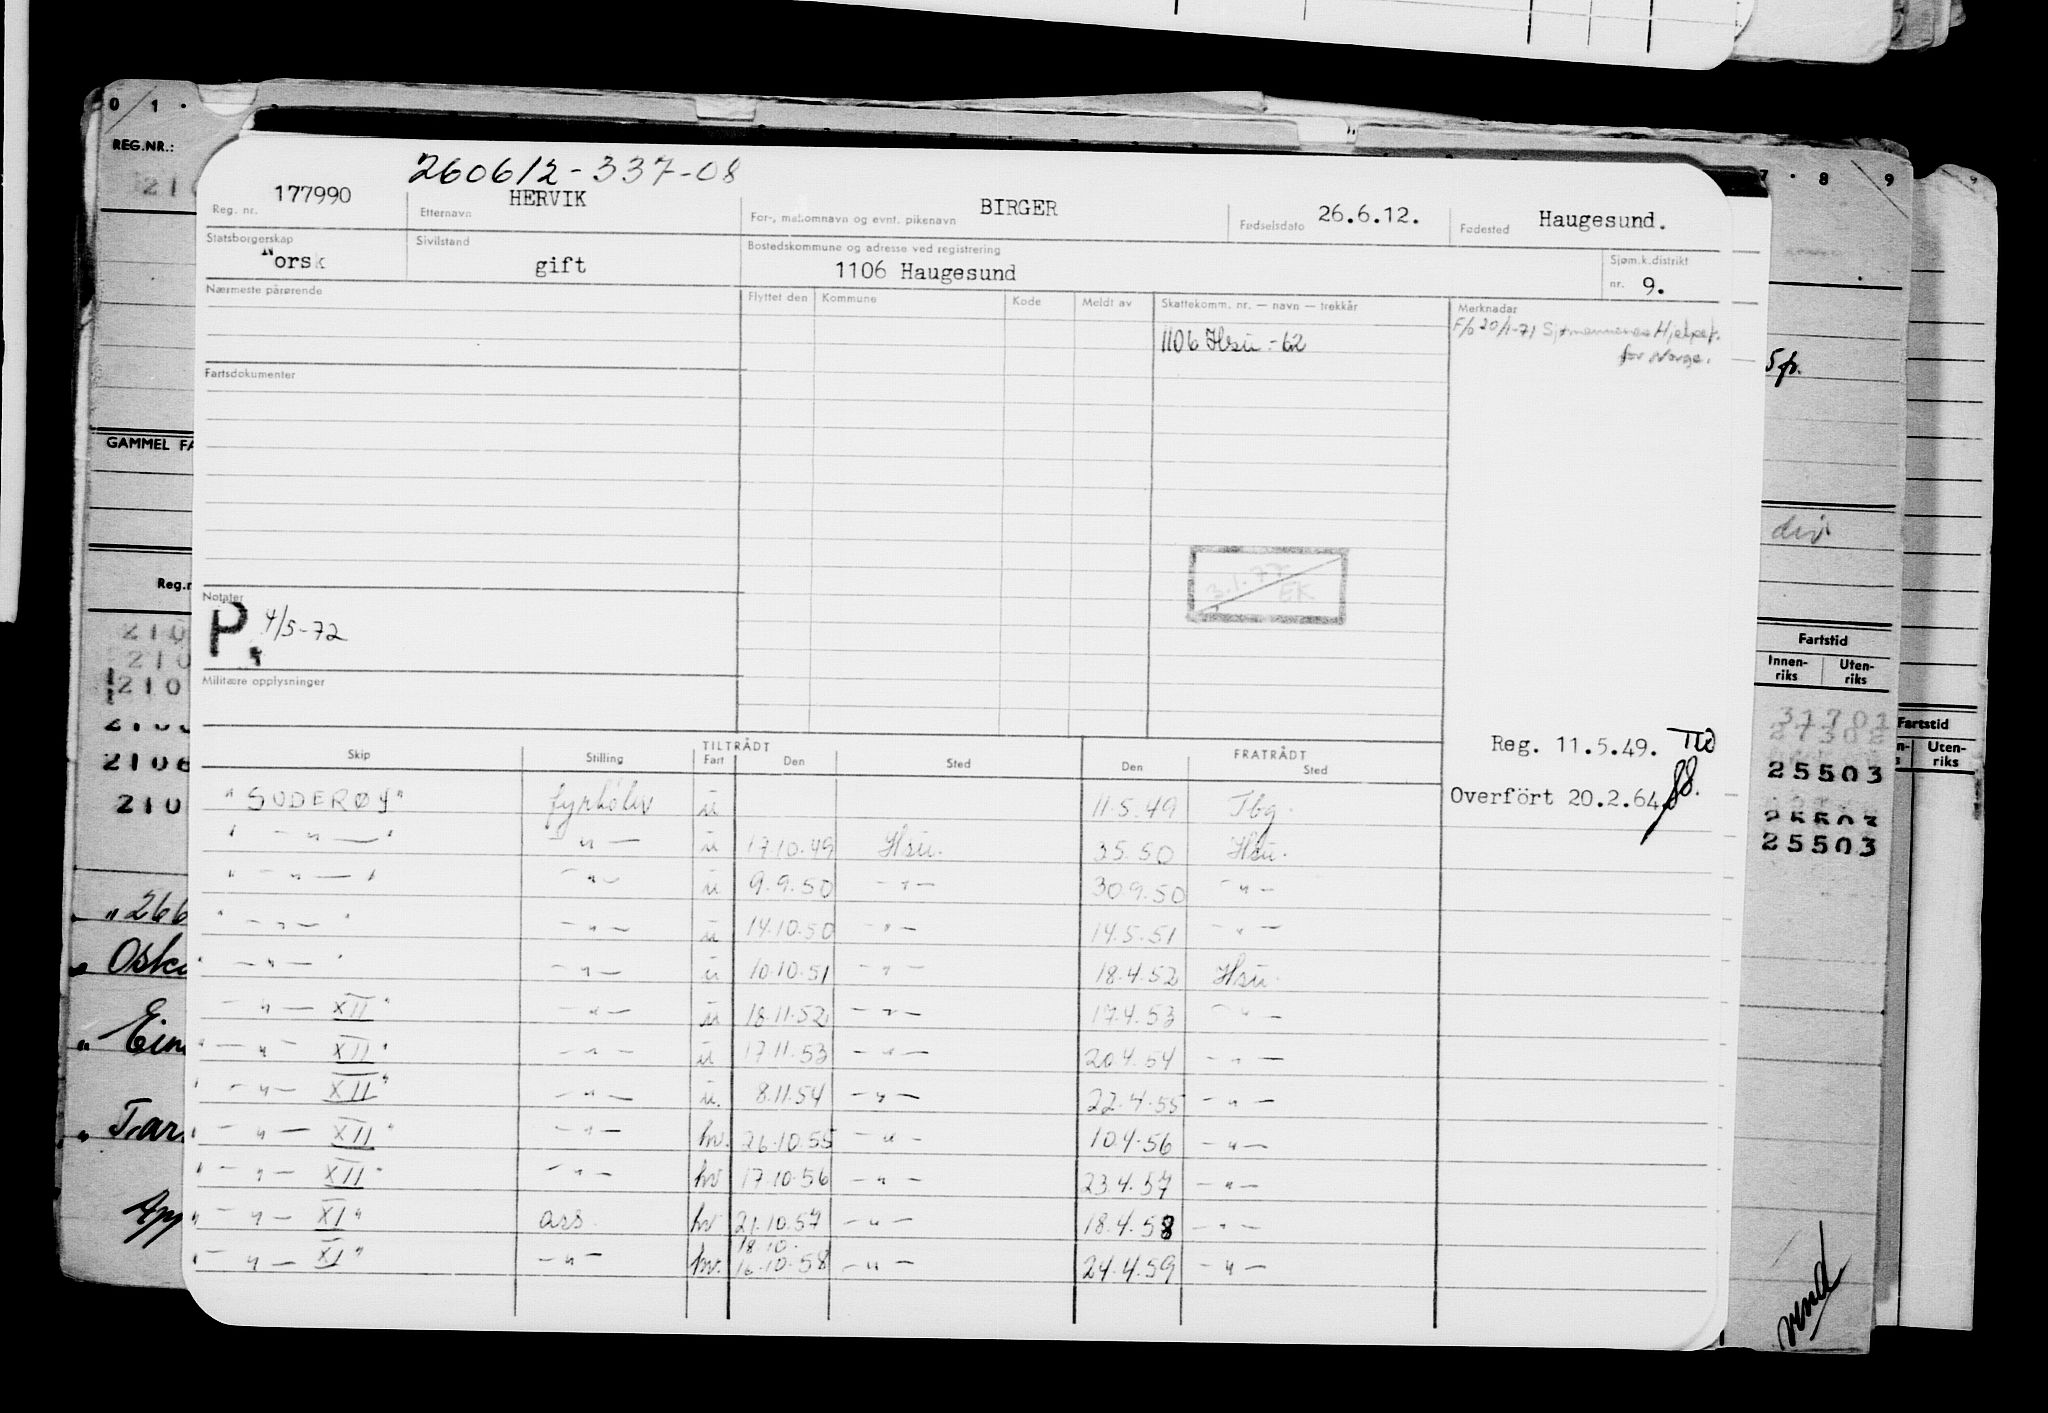 0 1 .
REG.NR.:
7 . 8 9
260612-337-08
177990 HERVIK BIRGER 26.6.12. Haugesund.
Reg. nr. Etternavn For-, mellomnavn og evnt. pikenavn Fødselsdato Fødested
Statsborgerskap Sivilstand Bostedskommune og adresse ved registrering Sjøm.k.distrikt
Norsk gift 1106 Haugesund nr. 9.
Nærmeste pårørende Flyttet den Kommune Kode Meldt av Skattekomm. nr. — navn — trekkår Merknadar
1106 Hsu -62 F/b 20/1-71 Sjømennenes Hjelpef.
for Norge.
5p.
Fartsdokumenter
GAMMEL FA
div
3.1.77
EK
Notater
P. 4/5-72
Militære opplysninger
Fartstid
Innen-riks Uten-riks
Fartstid
Uten-riks
TILTRÅDT FRATRÅDT
Skip Stilling Fart Den Sted Den Sted
Reg. 11.5.49.
Overfört 20.2.64
"SUDERØY" fyrbøter u 11.5.49 Tbg.
" — " — " — " — u 17.10.49 Hsu. 3.5.50 Hsu.
" — " — " — " — u 9.9.50 — " — 30.9.50 — " —
" — " — " — " — u 14.10.50 — " — 14.5.51 — " —
" — " — " — " — u 10.10.51 — " — 18.4.52 Hsu.
— " — XII" — " — u 18.11.52 — " — 17.4.53 — " —
" — " — XII" — " — u 17.11.53 — " — 20.4.54 — " —
" — " — XII" — " — u. 8.11.54 — " — 22.4.55 — " —
" — " — XII" — " — hv. 26.10.55 — " — 10.4.56 — " —
" — " — XII" — " — hv 17.10.56 — " — 23.4.57 — " —
" — " — XI" ass. hv 21.10.57 — " — 18.4.58 — " —
18.10.
" — " — XI" — " — hv. 16.10.58 — " — 24.4.59 — " —
Reg.n
25503
25503
25503
vend